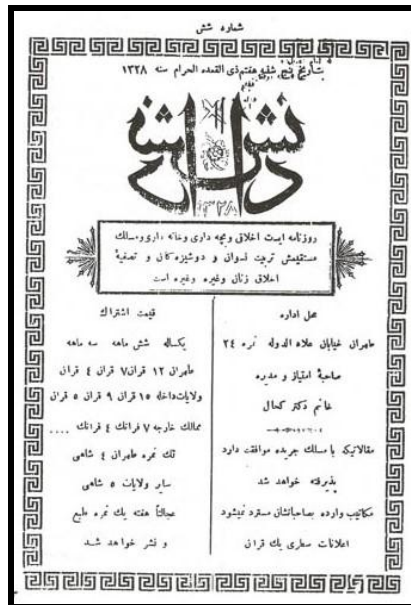 شماره شش
بتاریخ پنج شنبه هفتم ذی القعده الحرام سنه ۱۳۲۸
دانش
۱۳۲۸
روزنامه ایست اخلاق و بچه داری و خانه داری و مسلك
مستقیمش تربیت نسوان و دوشیزه کان و تصفیهٔ
اخلاق زنان وغیره وغیره است
محل اداره
طهران خیابان علاء الدوله نمره ۲۴
صاحبهٔ امتیاز و مدیره
خانم دکتر کحال
مقالاتیکه با مسلك جریده موافقت دارد
پذیرفته خواهد شد
مکاتیب وارده بصاحبانشان مسترد نمیشود
اعلانات سطری یك قران
قیمت اشتراك
یکساله شش ماهه سه ماهه
طهران ۱۲ قران ۷ قران ۴ قران
ولایات داخله ۱۵ قران ۹ قران ۵ قران
ممالك خارجه ۷ فرانك ۴ فرانك ....
تك نمره طهران ۴ شاهی
سایر ولایات ۵ شاهی
عجالتاً هفته یك نمره طبع
و نشر خواهد شد